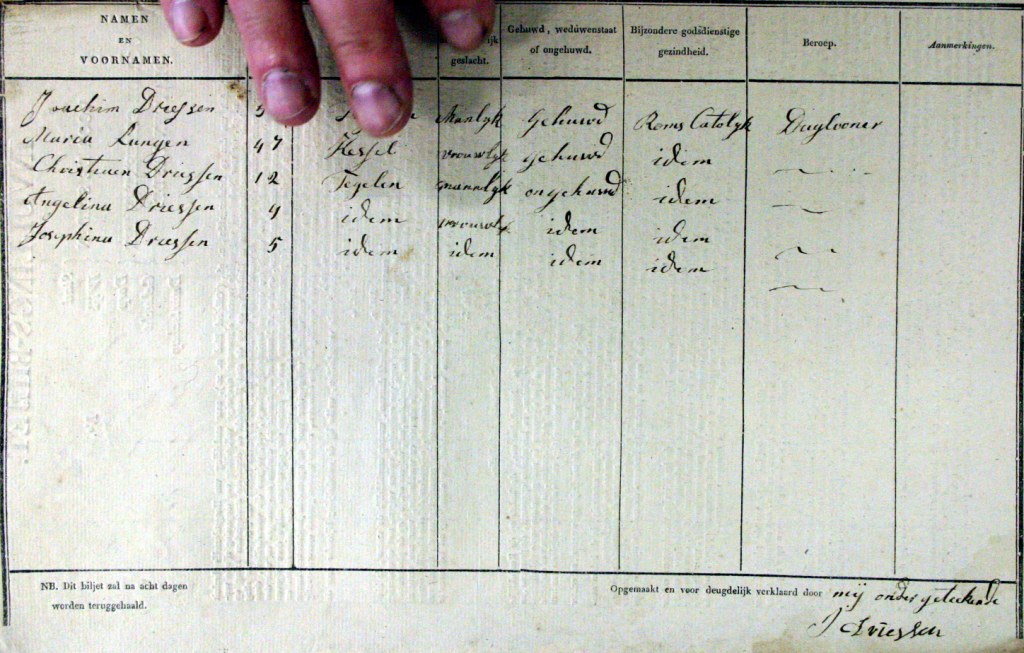 NAMEN
EN
VOORNAMEN.
geslacht.
Gehuwd, weduwenstaat
of ongehuwd.
Bijzondere godsdienstige
gezindheid.
Beroep.
Aanmerkingen.
Joachim Driessen Manlyk Gehuwd Roms Catolyk Daglooner
Maria Lungen 47 Kessel vrouwlyk gehuwd idem
Christiaen Driessen 12 Tegelen mannlyk ongehuwd idem
Angelina Driessen 9 idem vrouwlyk idem idem
Josephina Driessen 5 idem idem idem idem
NB. Dit biljet zal na acht dagen
worden teruggehaald.
Opgemaakt en voor deugdelijk verklaard door mij ondergeteekende
J Driessen